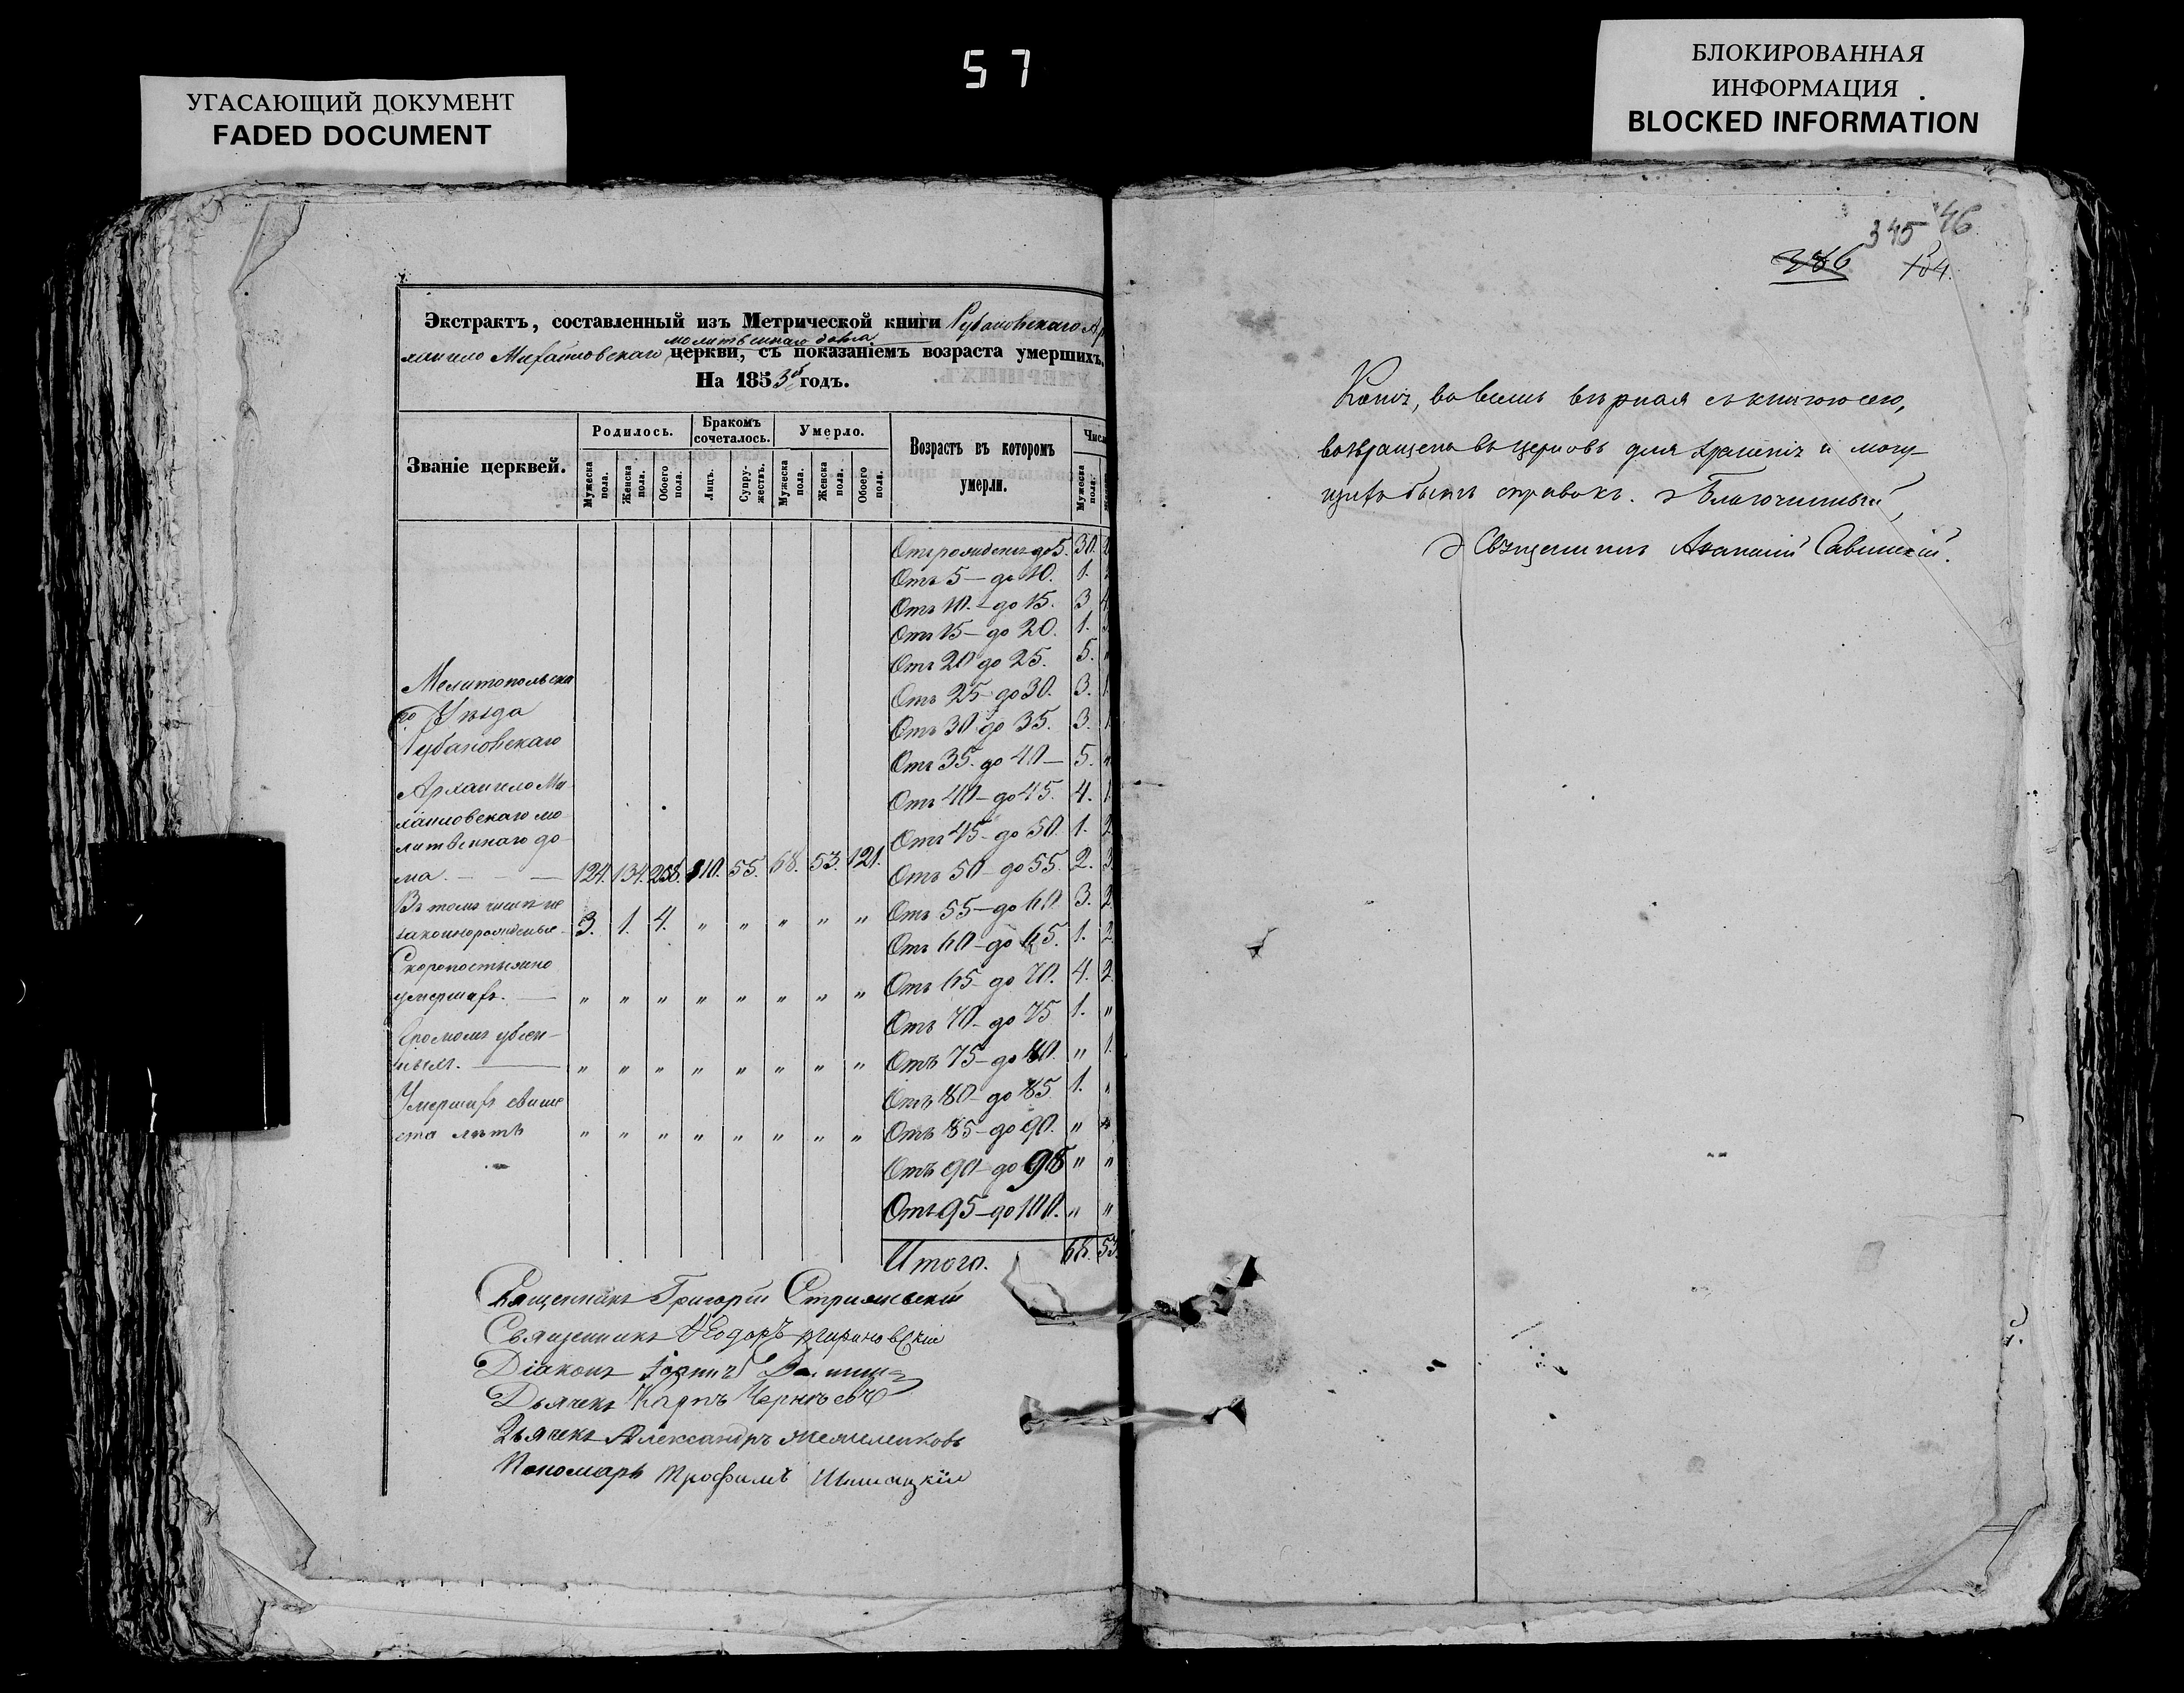 57
УГАСАЮЩИЙ ДОКУМЕНТ
FADED DOCUMENT
БЛОКИРОВАННАЯ
ИНФОРМАЦИЯ
BLOCKED INFORMATION
Экстрактъ, составленный изъ Метрической книги Рубановскаго Ар
молитвеннаго дома
хангело Михайловскаго церкви, съ показаніемъ возраста умершихъ.
На 1853й годъ.
Званіе церквей.
Родилось.
Бракомъ сочеталось.
Умерло.
Возрастъ въ которомъ умерли.
Мужеска пола.
Женска пола.
Обоего пола.
Лицъ.
Супружествъ.
Мужеска пола.
Женска пола.
Обоего пола.
Мужеска пола.
Отъ рожденія до 5. 30. 2
Отъ 5 – до 10. 1.
Отъ 10. – до 15. 3 4
Отъ 15 – до 20. 1. 3
Отъ 20 до 25. 5. "
Отъ 25 до 30. 3. 1.
Отъ 30 до 35. 3. 1
Отъ 35. до 40 – 5. "
Отъ 40 – до 45. 4. 1.
Отъ 45 – до 50. 1. 2
Отъ 50 – до 55. 2. 3
Отъ 55 – до 60. 3. 2.
Отъ 60 – до 65. 1. 2
Отъ 65 – до 70. 4. 2
Отъ 70 – до 75 1. "
Отъ 75 – до 80. " 1.
Отъ 80 – до 85. 1. "
Отъ 85 – до 90. " "
Отъ 90 – до 95 " "
Отъ 95 – до 100. " "
Итого. 68. 53.
Мелитопольска
го Уѣзда
Рубановскаго
Архангело Ми
хайловскаго мо
литвеннаго до
ма. – – – 124. 134. 258. 110. 55. 68. 53. 121.
Въ томъ числѣ не
законорожденныхъ 3. 1. 4. " " " " "
Скоропостыжно
умершихъ. – " " " " " " " "
Громомъ убіен-
ныхъ. – " " " " " " " "
Умершихъ свыше
ста лѣтъ " " " " " " " "
Священникъ Григорій
Священникъ Ѳеодоръ
Діаконъ
Дьячекъ Карпъ
Дьячекъ Александръ
Пономарь Трофимъ
345 46
386 134.
Копія, во всемъ вѣрная съ книгою сею,
возвращена въ церковь для храненія и могу-
щихъ быть справокъ. Благочинный,
Священникъ Савинскій.